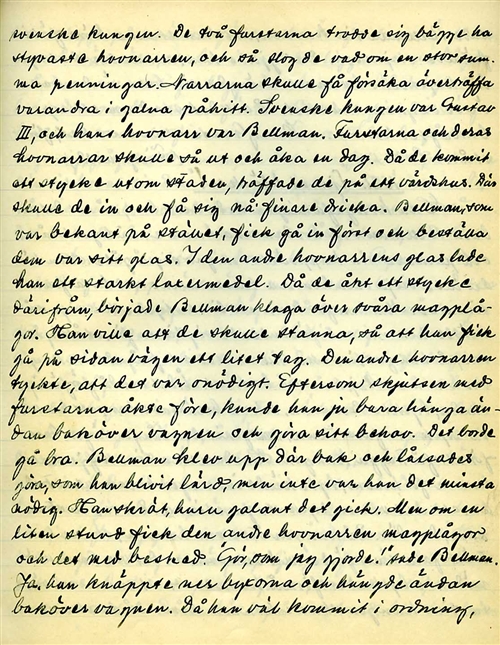 svenske kungen. De två furstarna trodde sig bägge ha
styvaste hovnarren, och så slog de vad om en stor sum-
ma penningar. Narrarna skulle få försöka överträffa
varandra i galna påhitt. Svenske kungen var Gustav
III, och hans hovnarr var Bellman. Furstarna och deras
hovnarrar skulle så ut och åka en dag. Då de kommit
ett stycke utom staden, träffade de på ett värdshus. Där
skulle de in och få sig nå' finare dricka. Bellman, som
var bekant på stället, fick gå in först och beställa
dem var sitt glas. I den andre hovnarrens glas lade
han ett starkt laxermedel. Då de åkt ett stycke
därifrån, började Bellman klaga över svåra magplå-
gor. Han ville att de skulle stanna, så att han fick
gå på sidan vägen ett litet tag. Den andre hovnarren
tyckte, att det var onödigt. Eftersom skjutsen med
furstarna åkte före, kunde han ju bara hänga än-
dan baköver vagnen och göra sitt behov. Det borde
gå bra. Bellman klev upp där bak och låtsades
göra, som han blivit lärd, men inte var han det minsta
nödig. Han skröt, huru galant det gick. Men om en
liten stund fick den andre hovnarren magplågor
och det med besked. "Gör, som jag gjorde!" sade Bellman.
Ja, han knäppte ner byxorna och hängde ändan
baköver vagnen. Då han väl kommit i ordning,